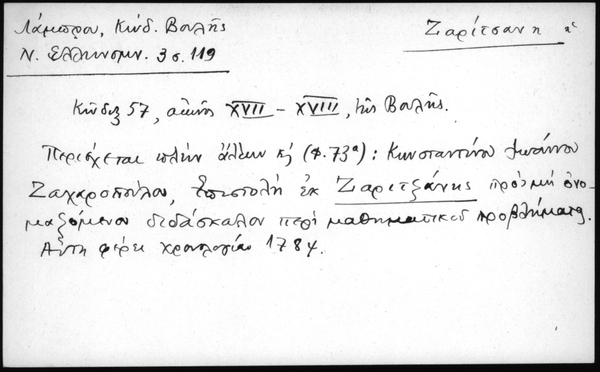 Λάμπρου, Κώδ. Βουλῆς
Ζαρίτσανη
Ν. Ἑλληνομν. 3 σ. 119
Κῶδιξ 57, αἰῶνος XVII – XVIII, τῆς Βουλῆς.
Περιέχεται πλὴν ἄλλων κ̣ (φ. 73α) : Κωνσταντίνου Ἰωάννου
Ζαχαροπούλου, Ἐπιστολὴ ἐκ Ζαριτζάνης πρὸς μὴ ὀνο-
μαζόμενον διδάσκαλον περὶ μαθηματικοῦ προβλήματος.
Αὕτη φέρει χρονολογίαν 1784.